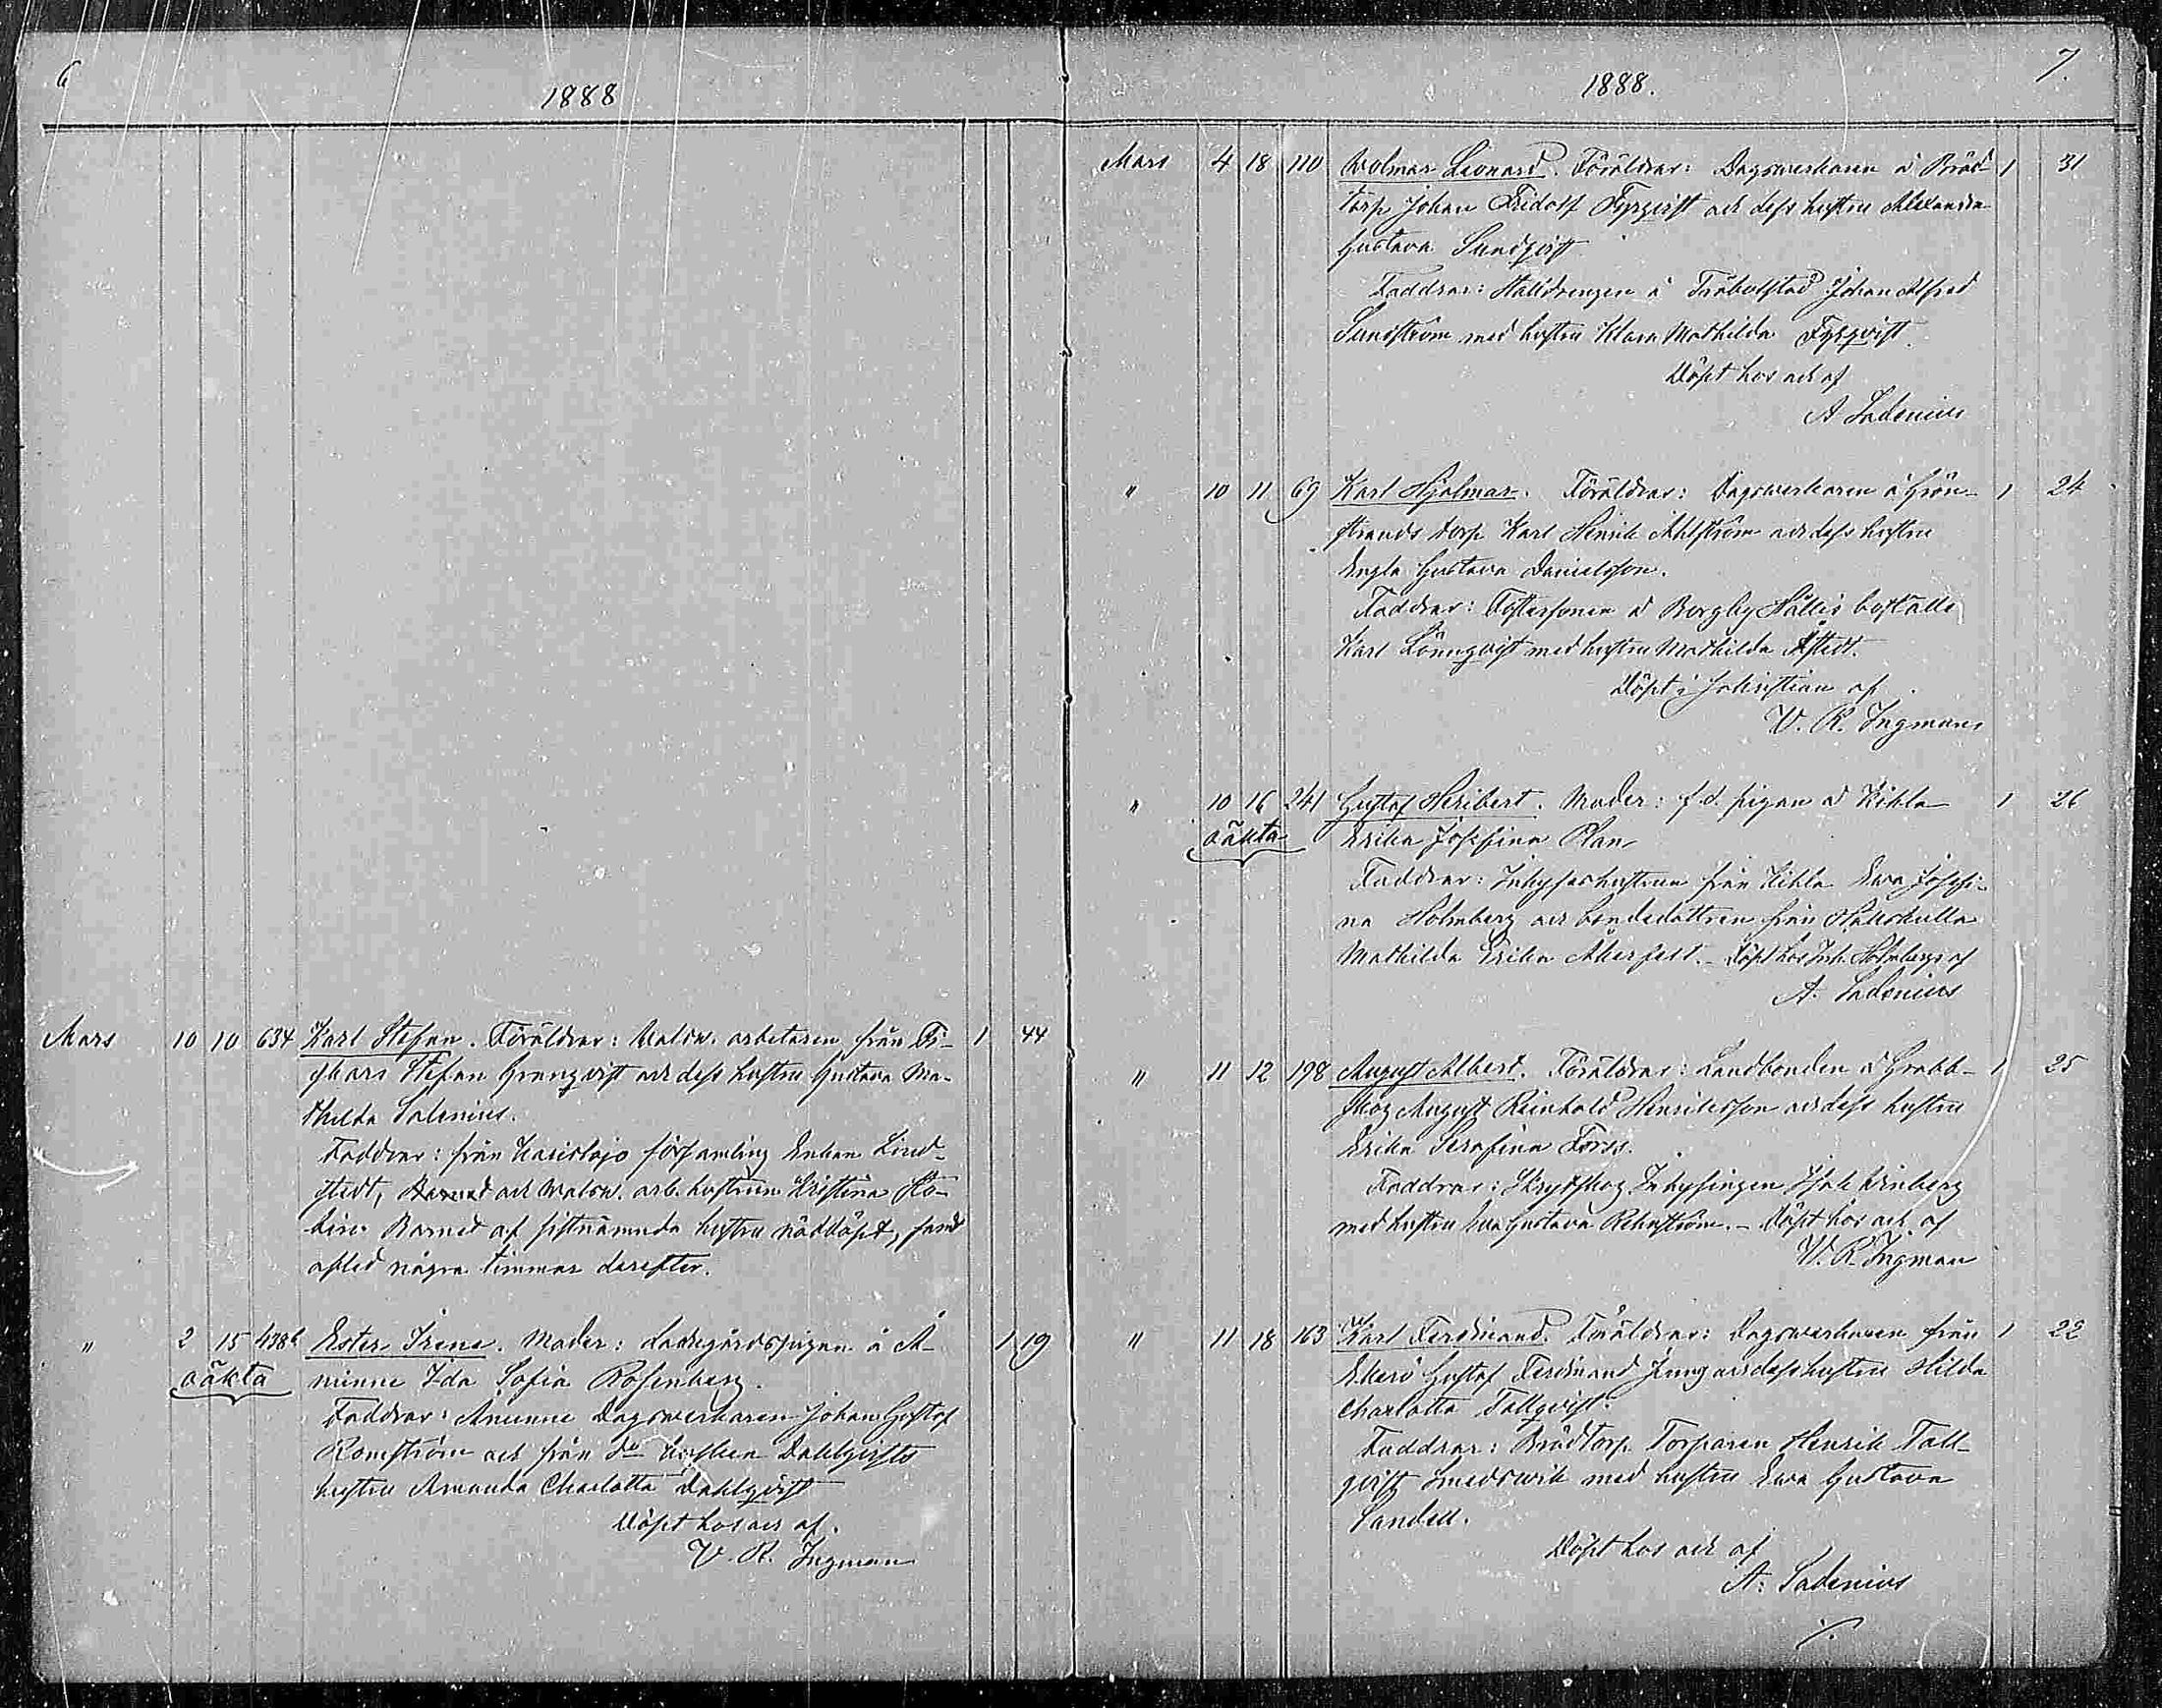 6
1888
Mars 10 10 634 Karl Stefan. Föräldrar: Valsv. arbetaren från Fi- 1 44
skars Stefan Granqvist och dess hustru Gustava Ma-
thilda Salenius.
Faddrar: från Karislojo församling Enkan Lind-
stedt, och Valsv. arb. hustrun Kristina
Barnet af sistnämnda hustru nöddöpt, samt
afled några timmar derefter.
" 2 15 438b Ester Irene. Moder: Ladugårdspigan å Å- 1 19
oäkta minne Ida Sofia Rosenberg.
Faddrar: Åminne Dagsverkaren Johan Gustaf
Romström och från do Dahlqvists
hustru Amanda Charlotta Dahlqvist
Döpt hos och af.
V. R. Ingman
7.
1888.
Mars 4 18 110 Volmar Leonard. Föräldrar: Dagsverkaren å Bröd- 1 31
torp Johan Fridolf Fyrqvist och dess hustru Alexandra
Gustava Sundqvist
Faddrar: Stalldrengen å Johan Alfred
Sundström med hustru Klara Mathilda Fyrqvist.
Döpt hos och af
A Ladenius
" 10 11 69 Karl Hjalmar. Föräldrar: Dagsverkaren å Grön- 1 24
strands torp Karl Henrik Ahlström och dess hustru
Engla Gustava Danielsson.
Faddrar: Fostersonen å Borgby Hållis boställe
Karl Lönnqvist med hustru Mathilda
Döpt i Sakristian af
V. R. Ingman
" 10 16 241 Gustaf Heribert. Moder: f.d. pigan å Kihla 1 26
oäkta Erika Josefina Plan
Faddrar: Inhyseshustrun från Kihla Eva Josefi-
na Holmberg och bondedottren från
Mathilda Erika Åkerfelt. - Döpt hos Inh. Holmbergs af
A. Ladenius
" 11 12 198 August Albert. Föräldrar: Landbonden å Grabb- 1 25
skog August Reinhold Henriksson och dess hustru
Erika Serafina Forss.
Faddrar: Inhysingen Isak Lindberg
med hustru Eva Gustava Rehnström. - Döpt hos och af
V. R. Ingman
" 11 18 163 Karl Ferdinand. Föräldrar: Dagsverkaren från 1 22
Ekerö Gustaf Ferdinand Ljung och dess hustru Hilda
Charlotta Tallqvist.
Faddrar: Brödtorp Torparen Henrik Tall-
qvist Smedsvik med hustru Eva Gustava
Sandell.
Döpt hos och af
A. Ladenius